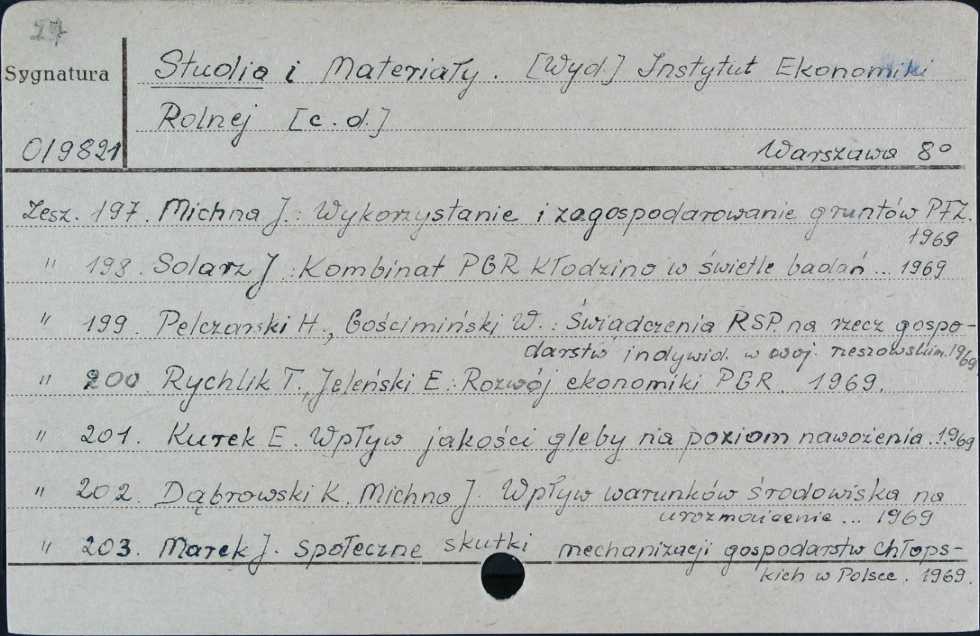 27
Sygnatura
Studia i Materiały. [Wyd.] Instytut Ekonomiki
Rolnej [c.d.]
0/9821
Warszawa 8°
Zesz. 197. Michna J.: Wykorzystanie i zagospodarowanie gruntów PFZ.
1969
" 198. Solarz J.: Kombinat PGR Kłodzino w świetle badań... 1969
" 199. Pelczarski H., Gościmiński W.: Świadczenia RSP. na rzecz gospo-
darstw indywid. w woj. rzeszowskim. 1969
" 200 Rychlik T., Jeleński E.: Rozwój ekonomiki PGR. 1969.
" 201. Kurek E. Wpływ jakości gleby na poziom nawożenia. 1969
" 202. Dąbrowski K. Michna J. Wpływ warunków środowiska na
urozmaicenie... 1969
" 203. Marek J. Społeczne skutki mechanizacji gospodarstw chłops-
kich w Polsce. 1969.